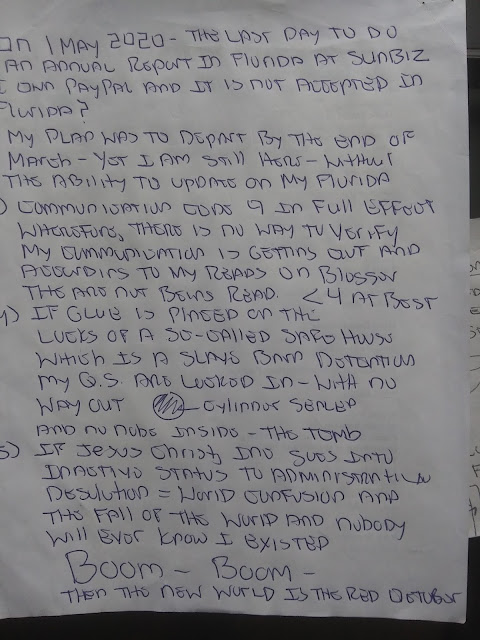 On 1 MAY 2020 - THE LAST DAY TO DO
AN ANNUAL REPORT IN FLORIDA AT SUNBIZ
I OWN PAYPAL AND IT IS NOT ACCEPTED IN
FLORIDA?
MY PLAN WAS TO DEPART BY THE END OF
MARCH - YET I AM STILL HERE - WITHOUT
THE ABILITY TO UPDATE ON MY FLORIDA
) COMMUNICATION CODE 9 IN FULL EFFECT
WHEREFORE, THERE IS NO WAY TO VERIFY
MY COMMUNICATION IS GETTING OUT AND
ACCORDING TO MY READS ON BLOGGER
THE ARE NOT BEING READ. <4 AT BEST
4) IF GLUE IS PLACED ON THE
LOCKS OF A SO-CALLED SAFE HOUSE
WHICH IS A SLAVE BARN DETENTION
MY Q.S. ARE LOCKED IN - WITH NO
WAY OUT - CYLINDER SEALED
AND NO NOBE INSIDE - THE TOMB
5) IF JESUS CHRIST, INC GOES INTO
INACTIVE STATUS TO ADMINISTRATIVE
DESOLUTION = WORLD CONFUSION AND
THE FALL OF THE WORLD AND NOBODY
WILL EVER KNOW I EXISTED
BOOM - BOOM -
THEN THE NEW WORLD IS THE RED OCTOBER